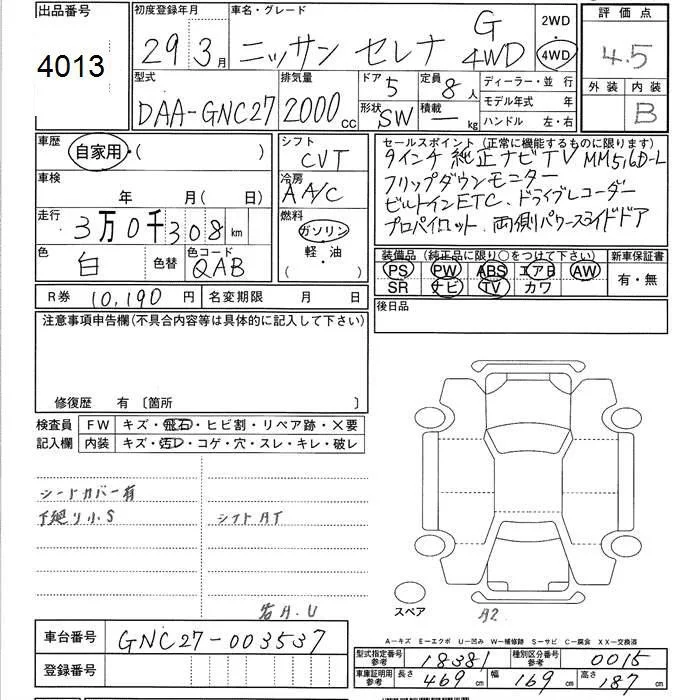 出品番号
4013
初度登録年月
29 3月
車名・グレード
ニッサン セレナ G 4WD
2WD
4WD
評価点
4.5
外装 内装
B
型式
DAA-GNC27
排気量
2000cc
ドア
5
形状
SW
定員
8人
積載
— kg
ディーラー・並行
モデル年式 年
ハンドル 左・右
車歴
自家用・( )
シフト
CVT
車検
年 月( 日)
冷房
AA/C
走行
3万0千308km
燃料
ガソリン
軽・油
( )
色
白
色替
色コード
QAB
セールスポイント(正常に機能するものに限ります)
9インチ純正ナビTV MM516D-L
フリップダウンモニター
ビルトインETC、ドライブレコーダー
プロパイロット、両側パワースライドドア
装備品(純正品に限り○をつけて下さい)
新車保証書
PS PW ABS エアB AW
SR ナビ TV カワ
有・無
R券 10,190円
名変期限 月 日
後日品
注意事項申告欄(不具合内容等は具体的に記入して下さい)
修復歴 有〔箇所 〕
検査員
記入欄
FW キズ・飛石・ヒビ割・リペア跡・×要
内装 キズ・汚レ・コゲ・穴・スレ・キレ・破レ
シートカバー有
下廻り小S
シフトAT
スペア
A2
車台番号
GNC27-003537
登録番号
A-キズ E-エクボ U-凹み W-補修跡 S-サビ C-腐食 XX-交換済
型式指定番号
参考
18381
種別区分番号
参考
0015
車庫証明用
参考
長さ
469cm
幅
169cm
高さ
187cm